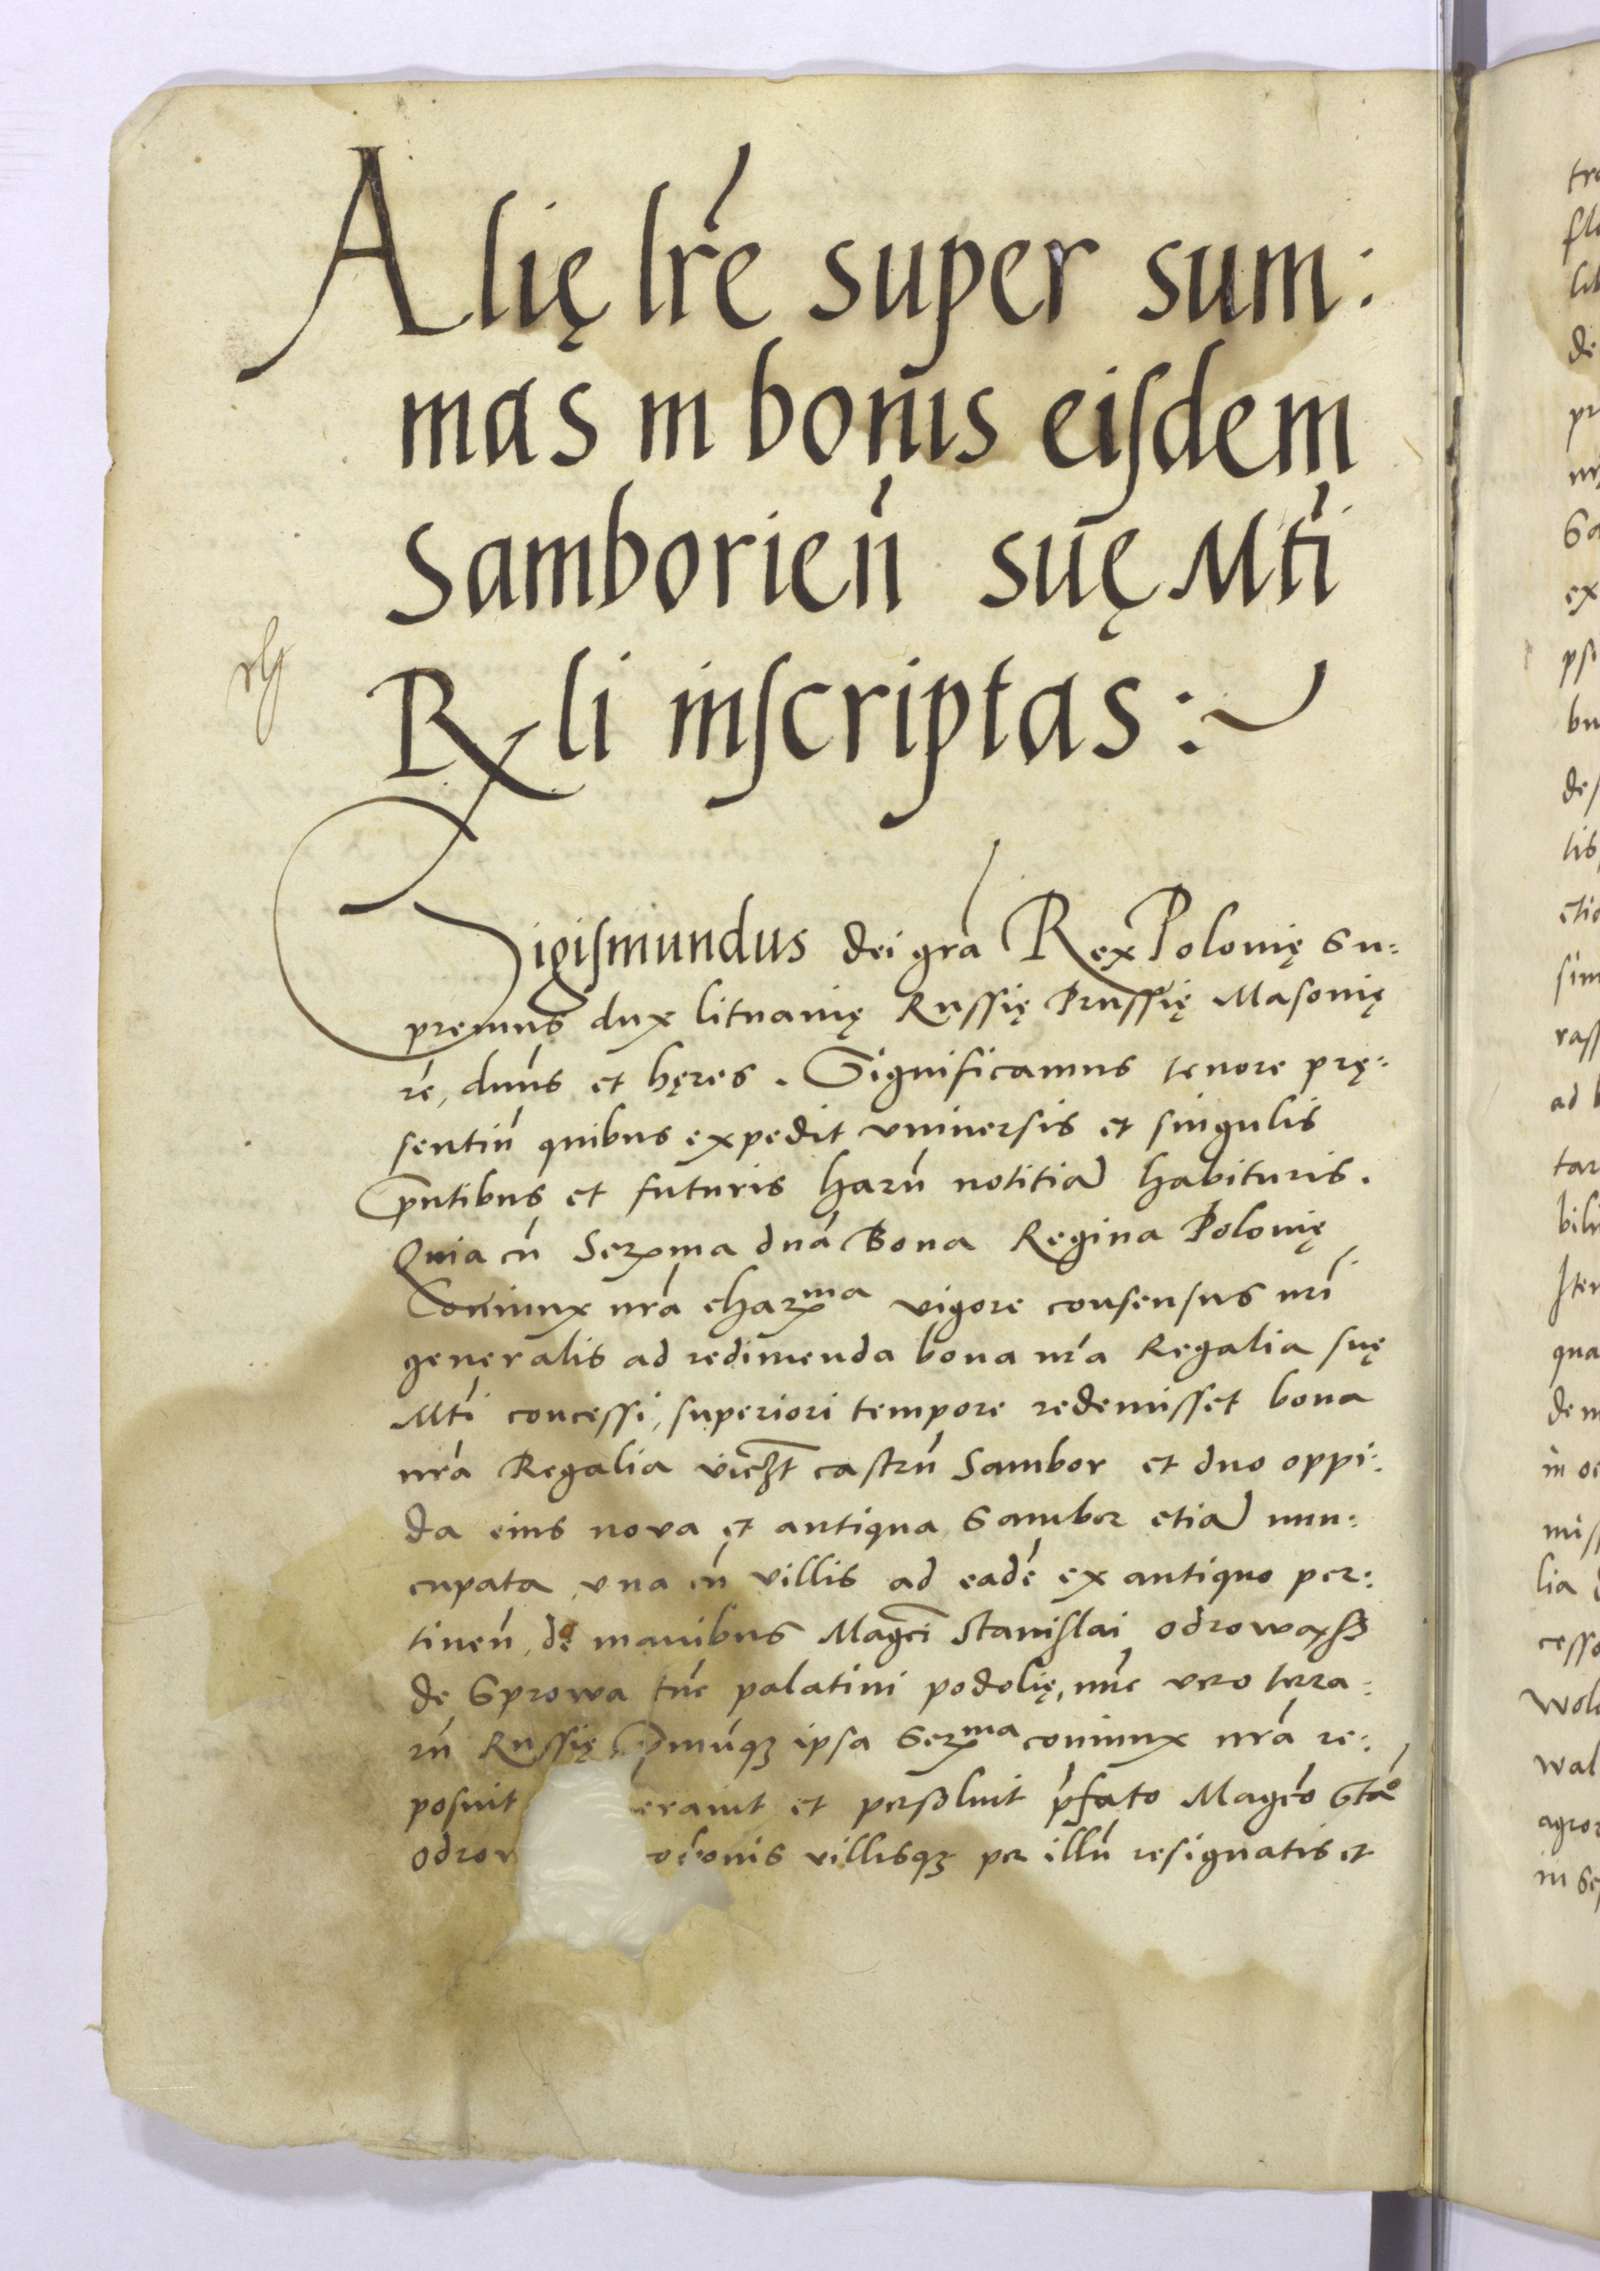 Alię lrē super sum:
mas in bonis eisdem
Samborien̄ suę Mti
Rli inscriptas:
Sigismundus dei gra Rex Polonię Su:
premus dux lituanię Russię Prussię Masonię
re, dnus et hęres. Significamus tenore prę:
sentiū quibus expedit vniuersis et singulis
pntibus et futuris harū notitiam habituris.
Quia cū Serma dna Bona Regina Polonię
Coniunx nra charma vigore consensus nri
generalis ad redimenda bona nra Regalia suę
Mti concessi, superiori tempore redemisset bona
nra Regalia viczt castrū Sambor et duo oppi:
da eius nova et antiqua Sambor etiam nun:
cupata, vna cū villis ad eadē ex antiquo per:
tinen̄, de manibus Magci Stanislai Odrowąsz
de Sprowa tūc palatini podolię, nūc vero terra:
rū Russię ipsa Serma coniunx nra re:
posuit erauit et persoluit pfato Magco Sta°
odrow bonis villisqz per illū resignatis et